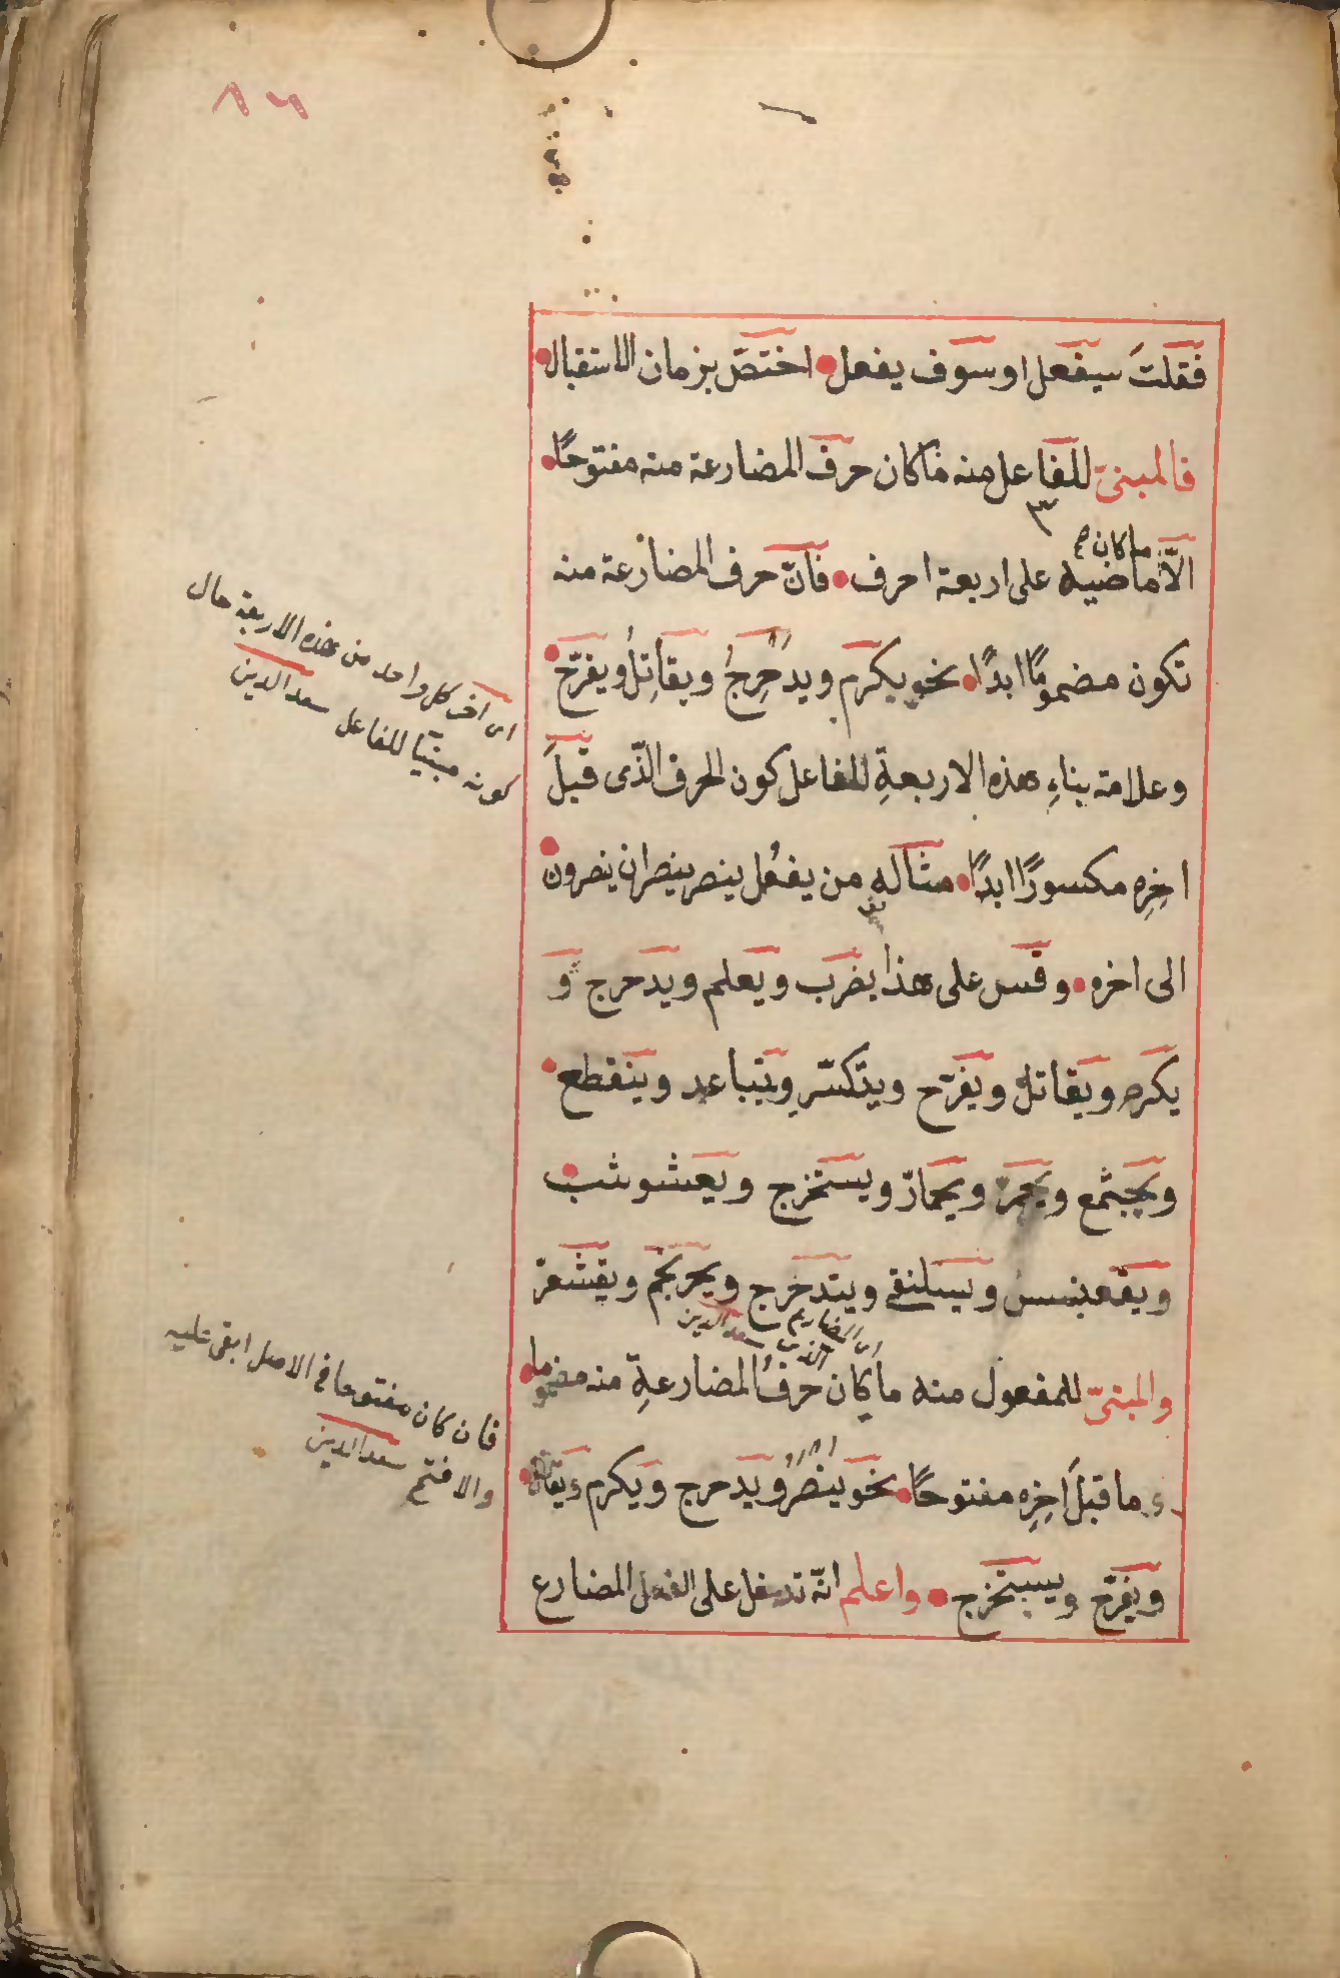 ٨٦
فقلتَ سيفعل او سوف يفعل اختصّ بزمان الاستقبال
فالمبنىّ للفاعل منه ما كان حرف المضارعة منه مفتوحًا
ما كان صح
الّا ماضيه على اربعة احرف فانّ حرف المضارعة منه
تكون مضمومًا ابدًا نحو يكرم ويدحرِجُ ويقاتِلُ ويفرّح
وعلامة بناءِ هذه الاربعةِ للفاعل كون الحرف الّذى قبلَ
اخِرِه مكسورًا ابدًا مثاله من يفعُل ينصر ينصران ينصرون
الى اخره وقس على هذا يضرب ويعلم ويدحرج و
يكرم ويقاتل ويفرّح ويتكسّر ويتباعد وينقطع
ويجتمع ويحمرّ ويحمارّ ويستخرج ويعشوشب
ويقعنسس ويسلنقى ويتدحرج ويحرنجم ويقشعرّ
اى المضارع الذى سعد الدين
والمبنىّ للمفعول منه ما كان حرفُ المضارعةِ منه مضموما
و ما قبلَ اخِرِه مفتوحًا نحو ينصَرُ ويدحرج ويكرم ويقاتل
ويفرّح ويستخرج واعلم انّه تدخل على الفعل المضارع
اى آخر كل واحد من هذه الاربعة حال
كونه مبنيّا للفاعل سعد الدين
فان كان مفتوحا فى الاصل ابقى عليه
والا فتح سعد الدين